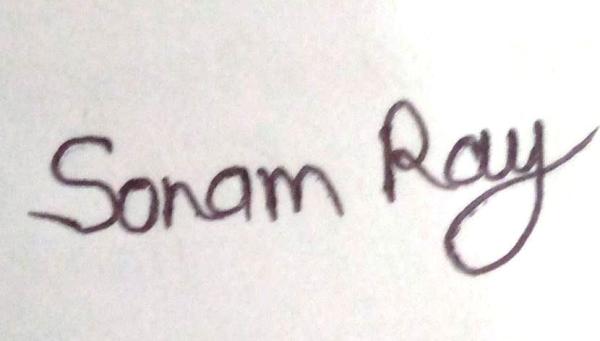 Sonam Ray